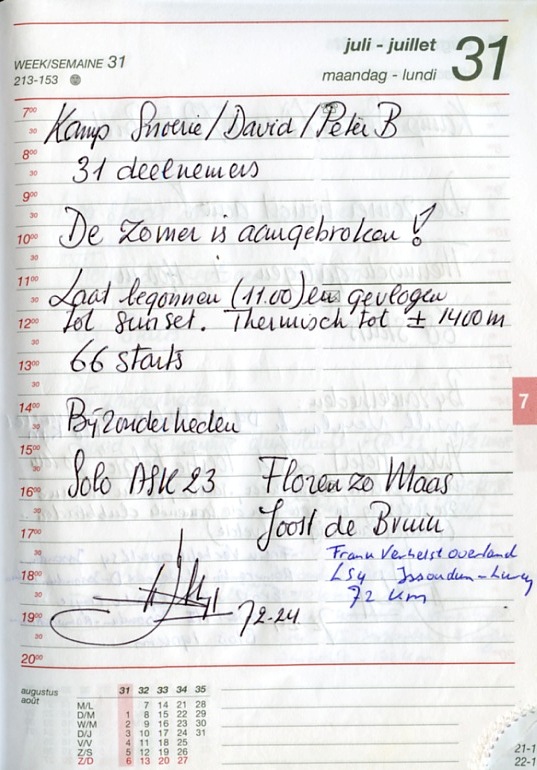 WEEK/SEMAINE 31
213-153
juli - juillet
maandag - lundi
31
7⁰⁰
30
8⁰⁰
30
9⁰⁰
30
10⁰⁰
30
11⁰⁰
30
12⁰⁰
30
13⁰⁰
30
14⁰⁰
30
15⁰⁰
30
16⁰⁰
30
17⁰⁰
30
18⁰⁰
30
19⁰⁰
30
20⁰⁰
Kamp Snoerie/David/Peter B
31 deelnemers
De zomer is aangebroken !
Laat begonnen (11.00) en gevlogen
tot sunset. Thermisch tot ± 1400 m
66 starts
Bijzonderheden
Solo ASK 23 Florenzo Maas
Joost de Bruin
Frank Verhelst overland
LS4 Issoudun - Lurcy
72 km
72-24
7
augustus
août
31 32 33 34 35
M/L 7 14 21 28
D/M 1 8 15 22 29
W/M 2 9 16 23 30
D/J 3 10 17 24 31
V/V 4 11 18 25
Z/S 5 12 19 26
Z/D 6 13 20 27
21-1
22-1